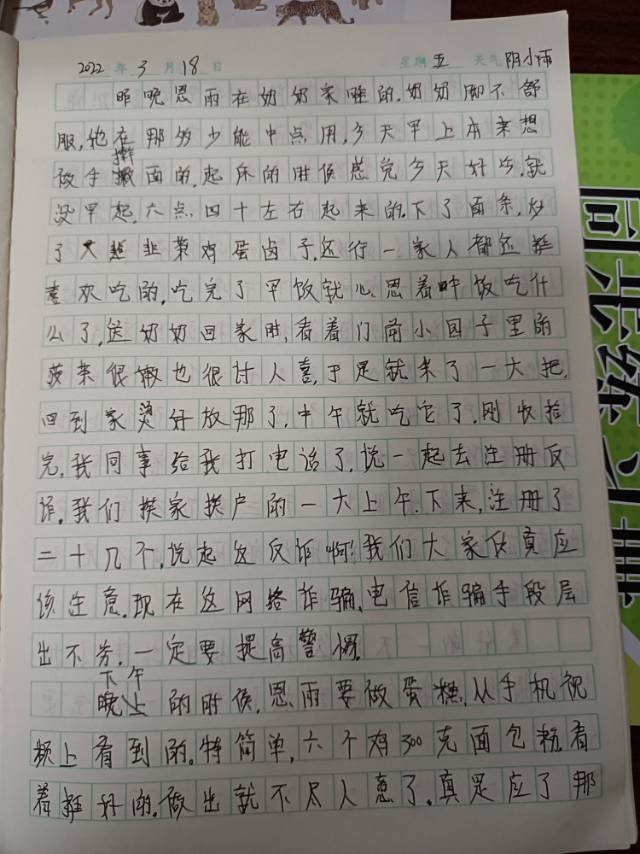 2022 年 3 月 18 日 星期 五 天气 阴小雨
昨晚恩雨在奶奶家睡的,奶奶脚不舒
服,他在那多少能中点用,今天早上本来想
做手擀面的,起床的时候感觉今天好冷,就
没早起,六点四十左右起来的,下了面条,炒
了大 韭菜鸡蛋卤子,还行一家人都还挺
喜欢吃的,吃完了早饭就心思着中饭吃什
么了,送奶奶回家时,看着门前小园子里的
菠菜很嫩也很讨人喜,于是就来了一大把,
回到家烫好放那了,中午就吃它了,刚收拾
完,我同事给我打电话了,说一起去注册反
诈,我们挨家挨户的一大上午,下来,注册了
二十几个,说起这反诈啊!我们大家伙真应
该注意,现在这网络诈骗,电信诈骗手段层
出不穷,一定要提高警惕。
下午
晚上的时候,恩雨要做蛋糕,从手机视
频上看到的,特简单,六个鸡300克面包糠,看
着挺好的,做出就不尽人意了,真是应了那
同步练习册